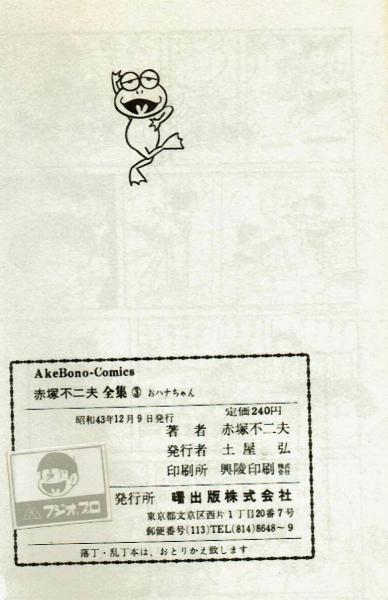 AkeBono-Comics
赤塚不二夫 全集 ③ おハナちゃん
昭和43年12月9日発行
定価240円
著者 赤塚不二夫
発行者 土屋弘
印刷所 興陵印刷 株式会社
フジオ・プロ
発行所 曙出版株式会社
東京都文京区西片1丁目20番7号
郵便番号(113)TEL(814)8648〜9
落丁・乱丁本は、おとりかえ致します